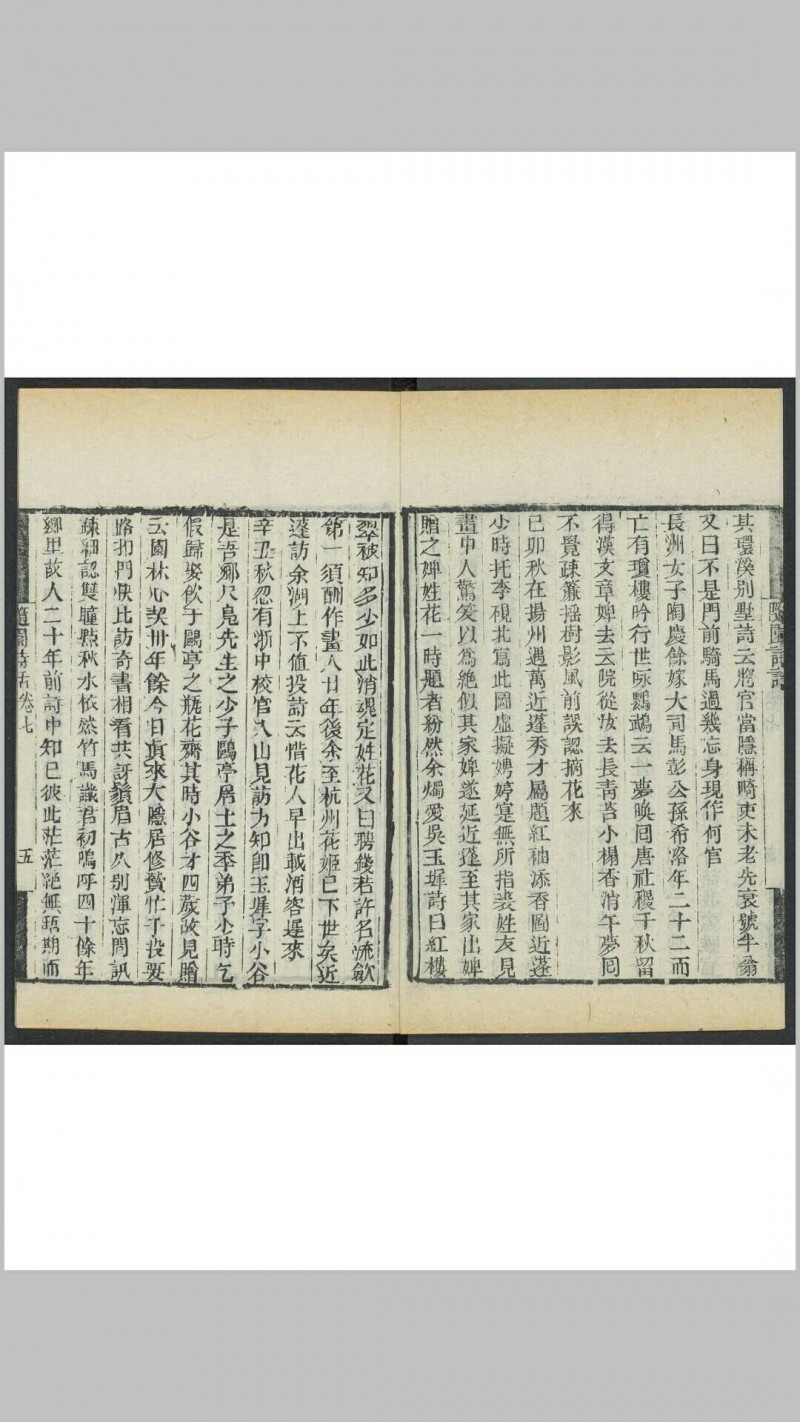 隨園詩話
其環溪別墅詩云將官當隱稱畸吏未老先衰號半翁
又曰不是門前騎馬過幾忘身現作何官
長洲女子陶慶餘嫁大司馬彭公孫希洛年二十二而
亡有瓊樓吟行世咏鸚鵡云一夢喚囘唐社稷千秋留
得漢文章婢去云院從汝去長青苔小榻香消午夢囘
不覺疎簾摇樹影風前誤認摘花來
己卯秋在揚州遇萬近蓬秀才屬題紅袖添香圖近蓬
少時托李硯北寫此圖虛擬娉婷寔無所指裴姓友見
畫中人驚笑以爲絶似其家婢遂延近蓬至其家出婢
贈之婢姓花一時題者粉然余獨愛吳玉墀詩曰紅樓
翠被知多少如此消魂定姓花又曰聘錢若許名流歛
第一須酬作畫人廿年後余至杭州花姬已下世矣近
蓬訪余湖上不值投詩云惜花人早出載酒客遲來
辛丑秋忽有浙中校官入山見訪方知即玉墀字小谷
是吾鄉尺鳧先生之少子鷗亭居士之季弟予少時乞
假歸娶飲于鷗亭之瓶花齋其時小谷才四歲故見贈
云園林心契卅年餘今日真來大隱居修贄忙于投要
路扣門快比訪奇書相看共訝鬚眉古久別渾忘問訊
疎細認雙瞳㸃秋水依然竹馬識君初嗚呼四十餘年
鄉里故人二十年前詩中知已彼此茫茫絶無蹈期而
隨園詩話卷七
五